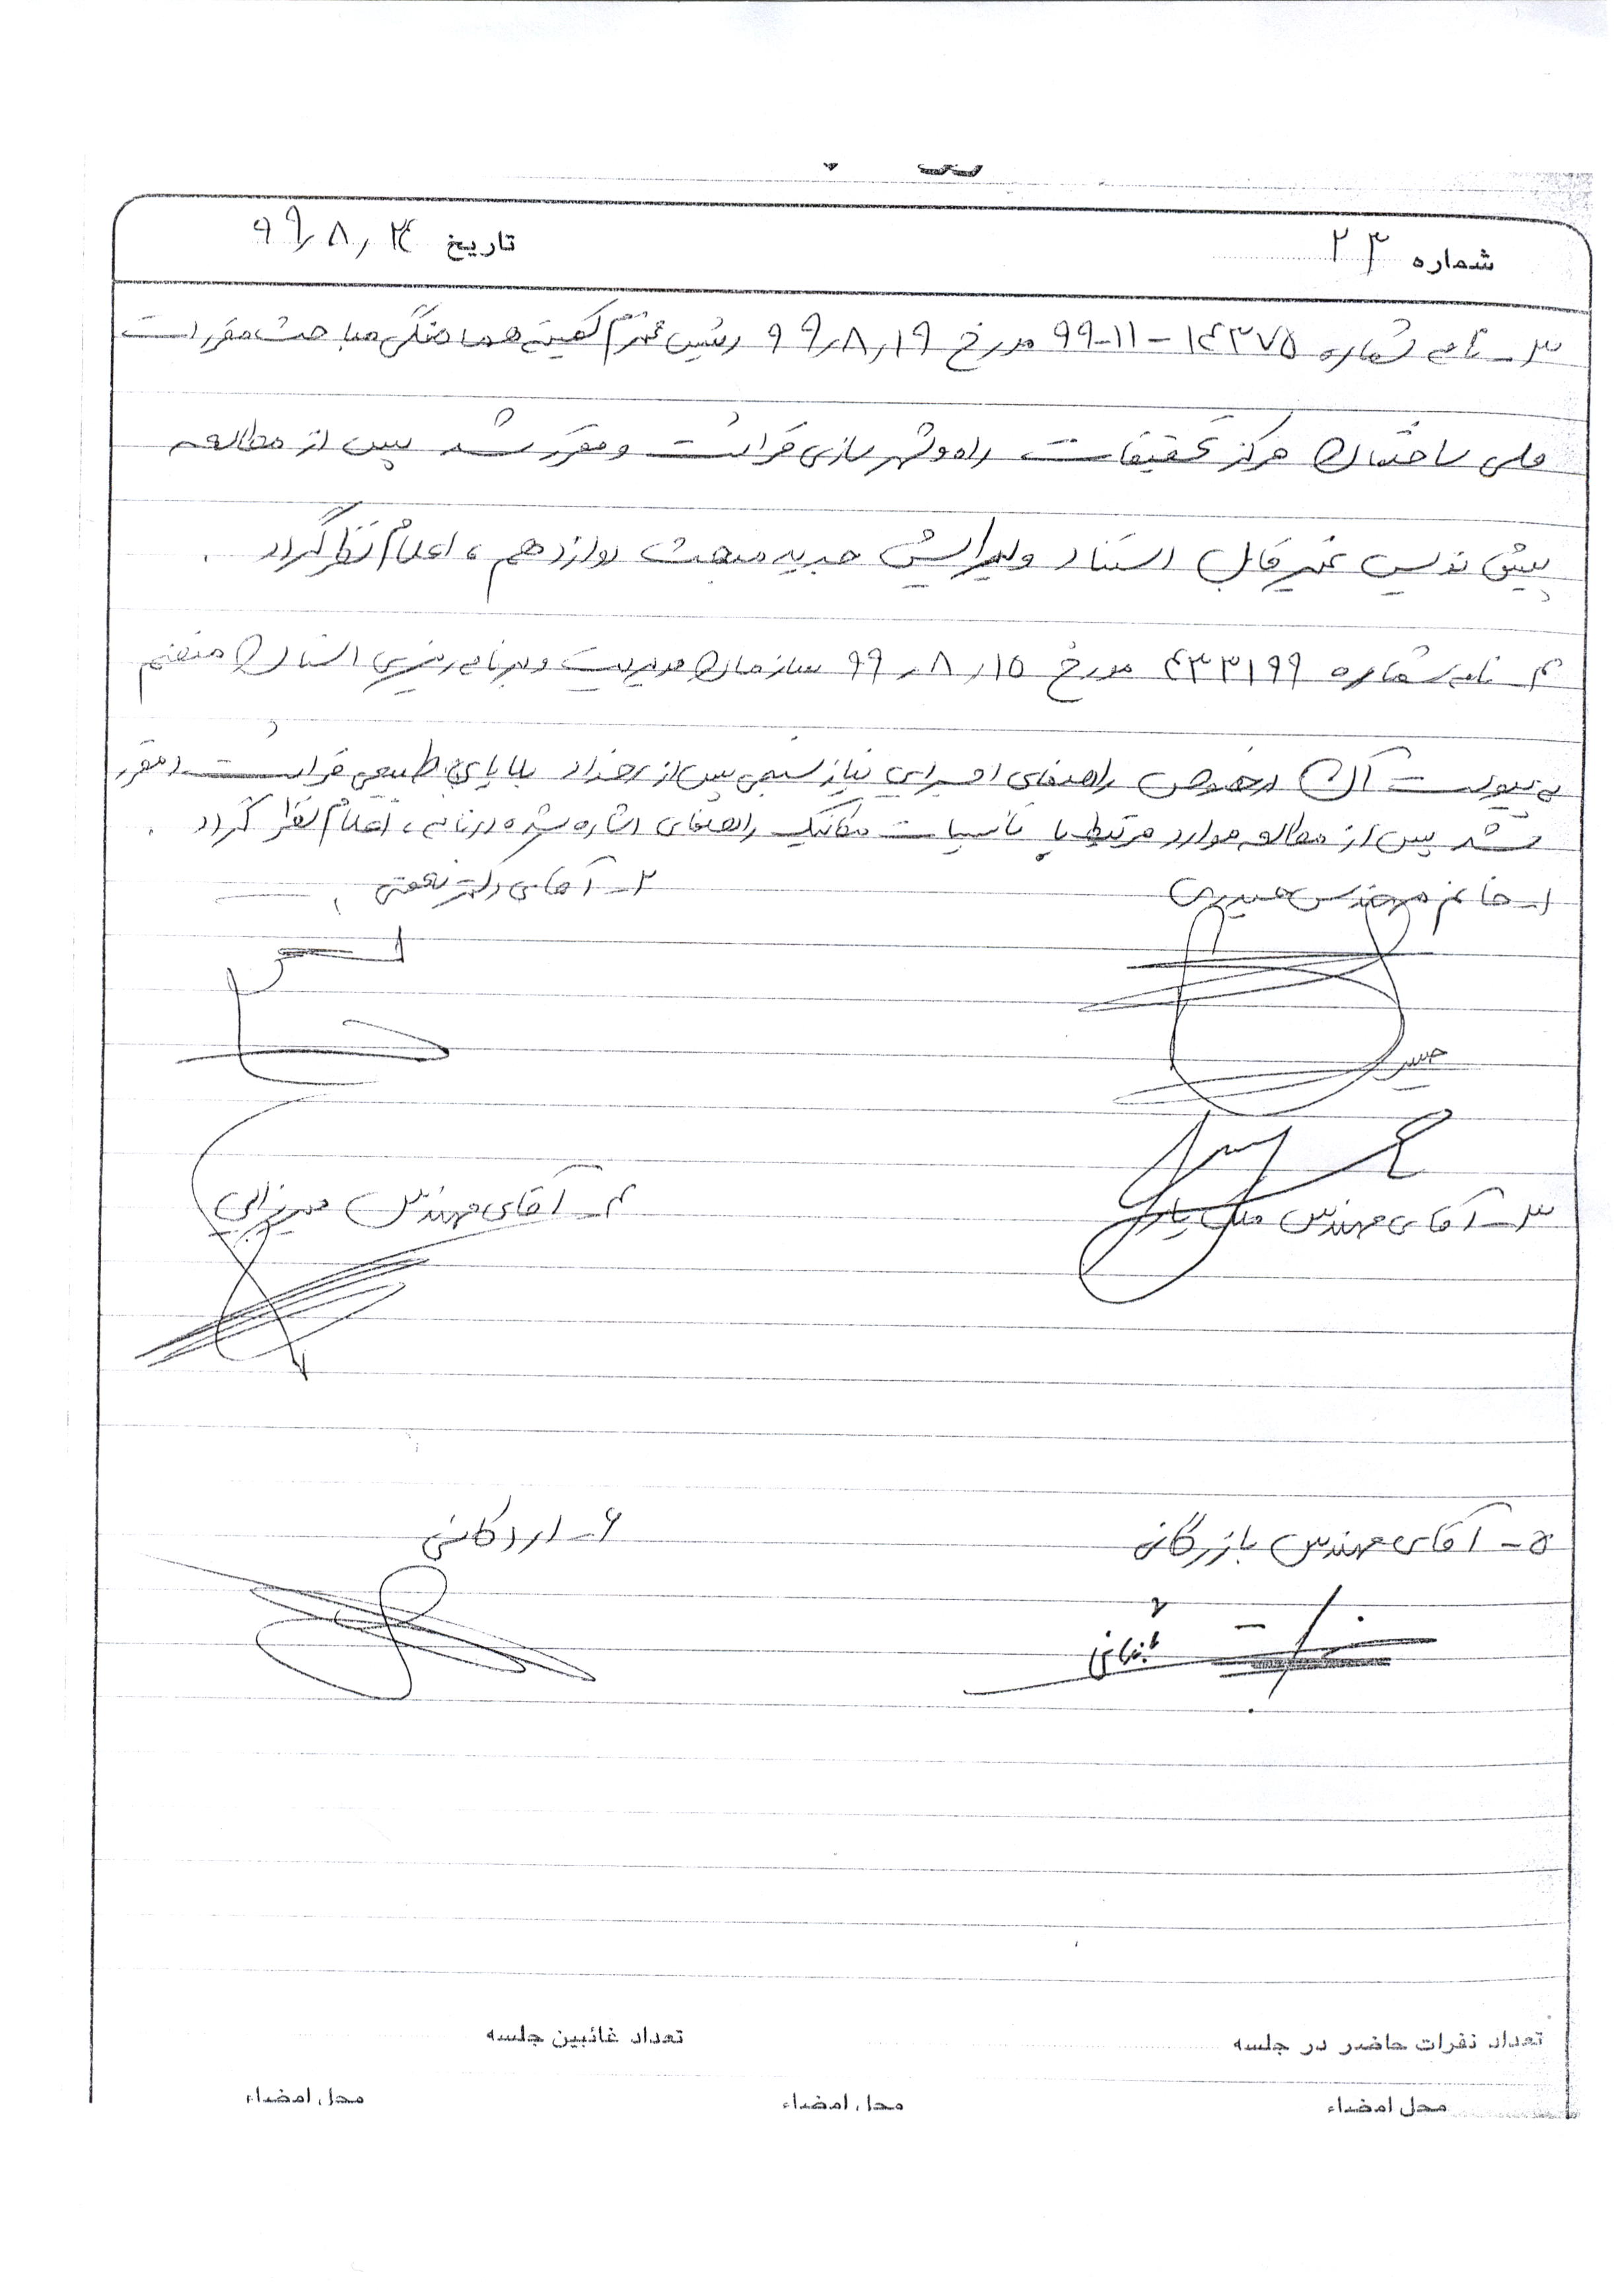 شماره ۲۳
تاریخ ۹۹٫۸٫۲۴
۳- نامه شماره ۱۴۳۷۵-۱۱-۹۹ مورخ ۹۹٫۸٫۱۹ رئیس محترم کمیته هماهنگی مباحث مقررات
ملی ساختمان مرکز تحقیقات راه و شهرسازی قرائت و مقرر شد پس از مطالعه
پیش نویس غیر قابل استناد ویرایش جدید مبحث دوازدهم، اعلام نظر گردد.
۴- نامه شماره ۴۳۳۱۹۹ مورخ ۹۹٫۸٫۱۵ سازمان مدیریت و برنامه ریزی استان منضم
به پیوست آن درخصوص راهنمای اجرایی نیاز سنجی پس از رخداد بلایای طبیعی قرائت و مقرر
شد پس از مطالعه موارد مرتبط با تاسیسات مکانیک راهنمای اشاره شده در نامه، اعلام نظر گردد.
۱- خانم مهندس حیدری
۲- آقای دکتر نعمتی
۳- آقای مهندس
۴- آقای مهندس میرزایی
۵- آقای مهندس بازرگانی
۶- اردکانی
تعداد نفرات حاضر در جلسه
تعداد غائبین جلسه
محل امضاء
محل امضاء
محل امضاء